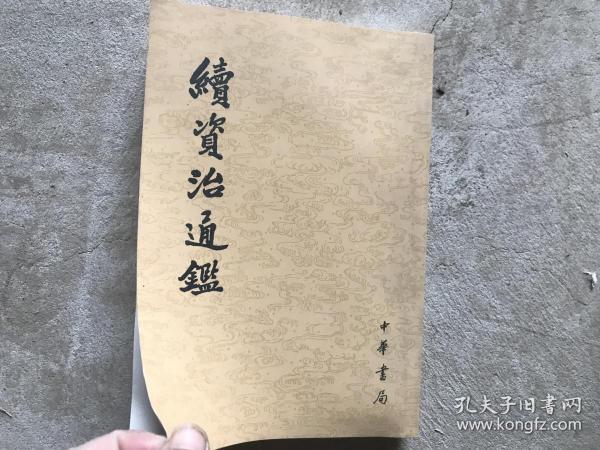 續資治通鑑
中華書局
孔夫子旧書网
www.kongfz.com